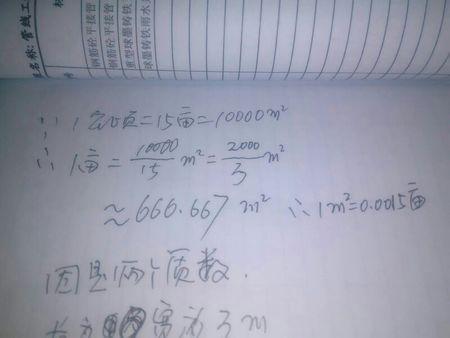 名称:管线工
钢筋砼平接管
钢筋砼平接管
重型球墨铸铁
球墨铸铁雨水
∵ 1公顷=15亩=10000m²
∴ 1亩=10000/15 m²=2000/3 m²
≈666.667 m² ∴1m²=0.0015亩
因是两个质数.
宽为3m